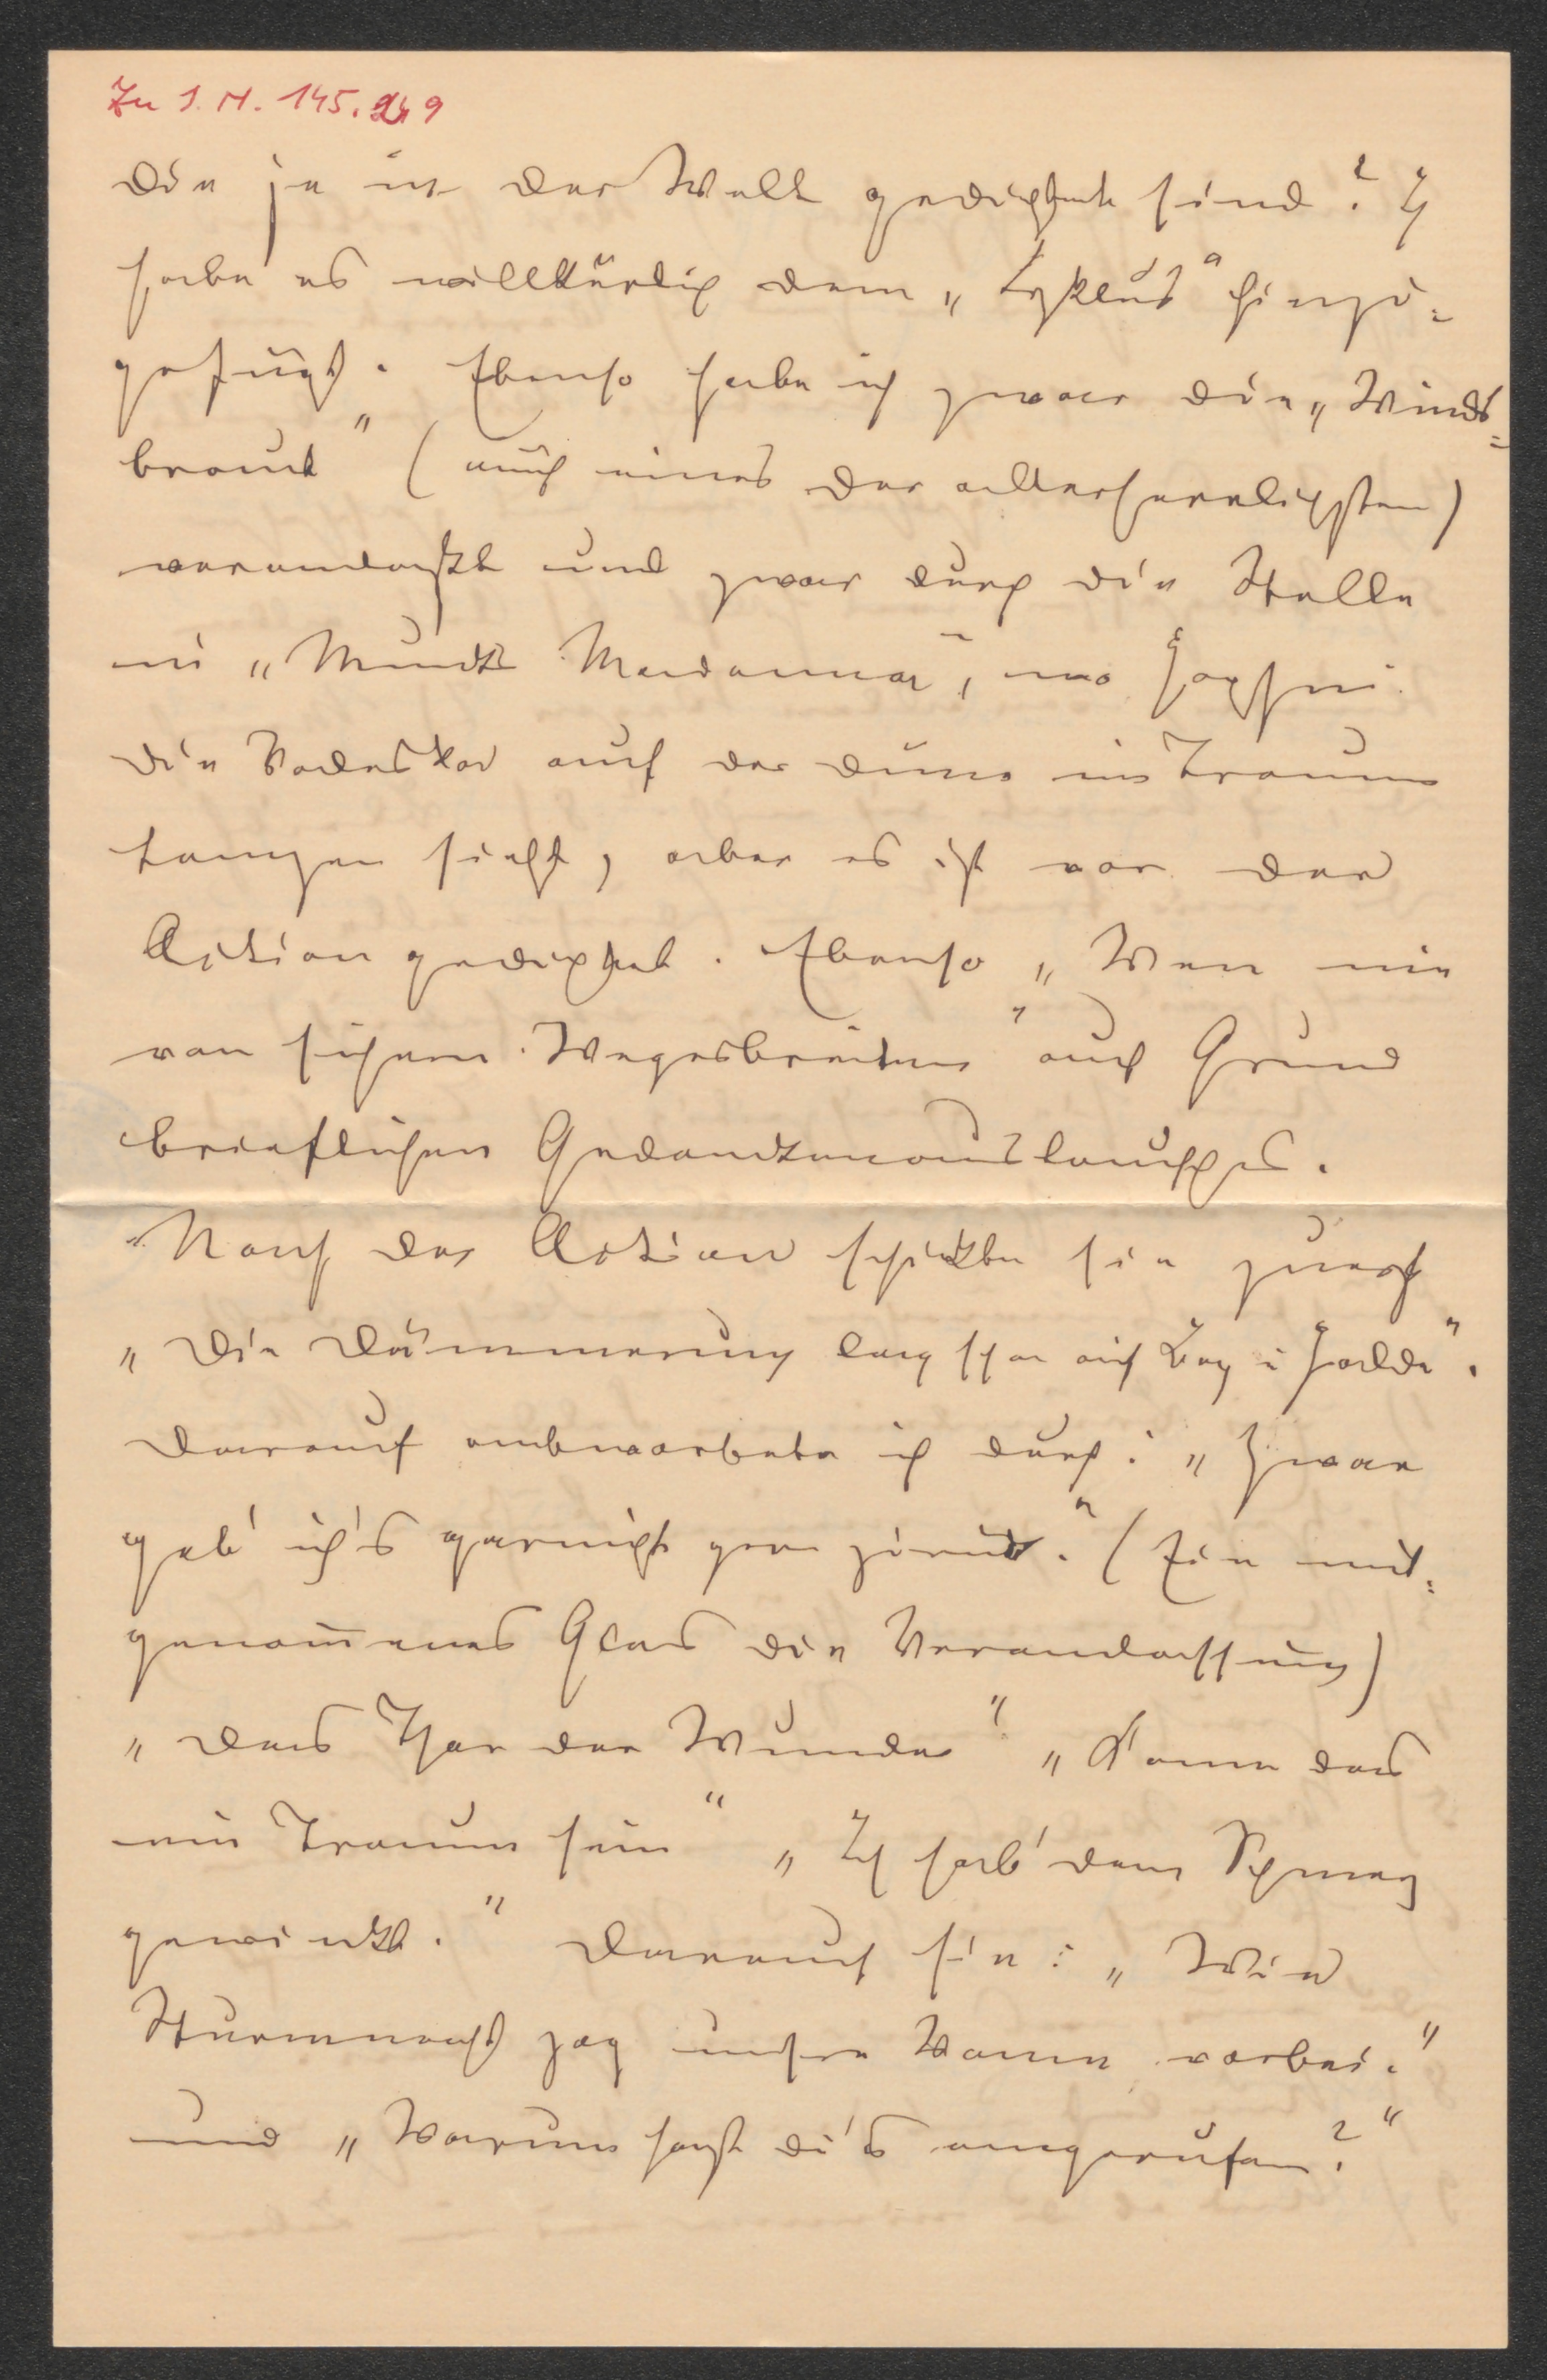 Zu I. N. 145.249
die je in der Welt gedichtet sind? Ich
habe es willkürlich dem „Zyklus" hinzu=
gefügt. Ebenso habe ich zwar die „Winds=
braut" (auch eines der allerherrlichsten)
veranlaßt und zwar durch die Stelle
in „Munkle Mardanna", wo
die auf der Düne im Traume
tanzen sieht, aber es ist vor der
Action gedichtet. Ebenso „Wen nie
von sichern Wegesbreiten" auf Grund
brieflichen Gedankenaustausches.
Nach der Action schickte sie zuerst
„Die Dämmerung lag schon auf Berg u Halde".
Darauf antwortete ich durch: „Zwar
geb' ich's garnicht gern zurück." (Ein mit=
genom̄enes Glas die Veranlassung)
„Das Thor der Wunder" „Kann das
ein Traum sein" „Ich hab' dem Schmerz
gewinkt." Darauf sie: „Wie
Sturmnacht zog unsre Wonne vorbei."
und „Warum hast du's angerufen?"